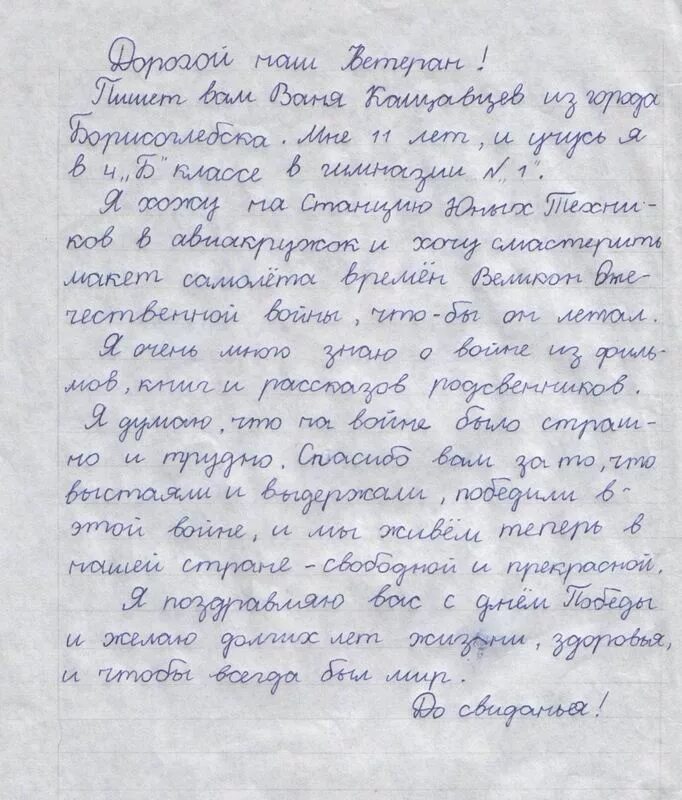 Дорогой наш Ветеран!
Пишет вам Ваня Кащавцев из города
Борисоглебска. Мне 11 лет, и учусь я
в 4 „Б" классе в гимназии N „1".
Я хожу на Станцию Юных Техни-
ков в авиакружок и хочу смастерить
макет самолёта времён Великой Оте-
чественной войны, что-бы он летал.
Я очень много знаю о войне из филь-
мов, книг и рассказов родсвенников.
Я думаю, что на войне было страш-
но и трудно. Спасибо вам за то, что
выстаяли и выдержали, победили в
этой войне, и мы живём теперь в
нашей стране - свободной и прекрасной.
Я поздравляю вас с днём Победы
и желаю долгих лет жизни, здоровья,
и чтобы всегда был мир.
До свиданья!